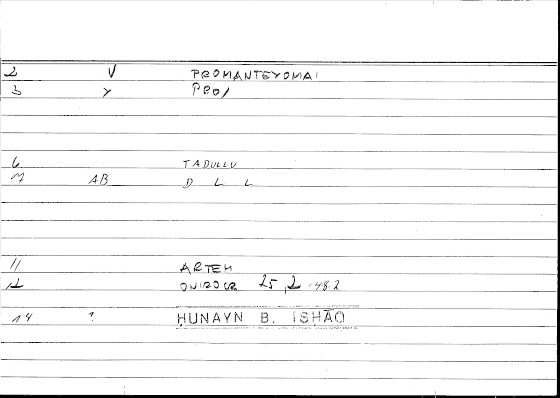 2 V PROMANTEYOMAI
3 Y PRO/
6 TADULLU
7 AB D L L
11 ARTEM
12 ONIROCR 25,2.482
14 ? ḤUNAYN B. ISHĀQ